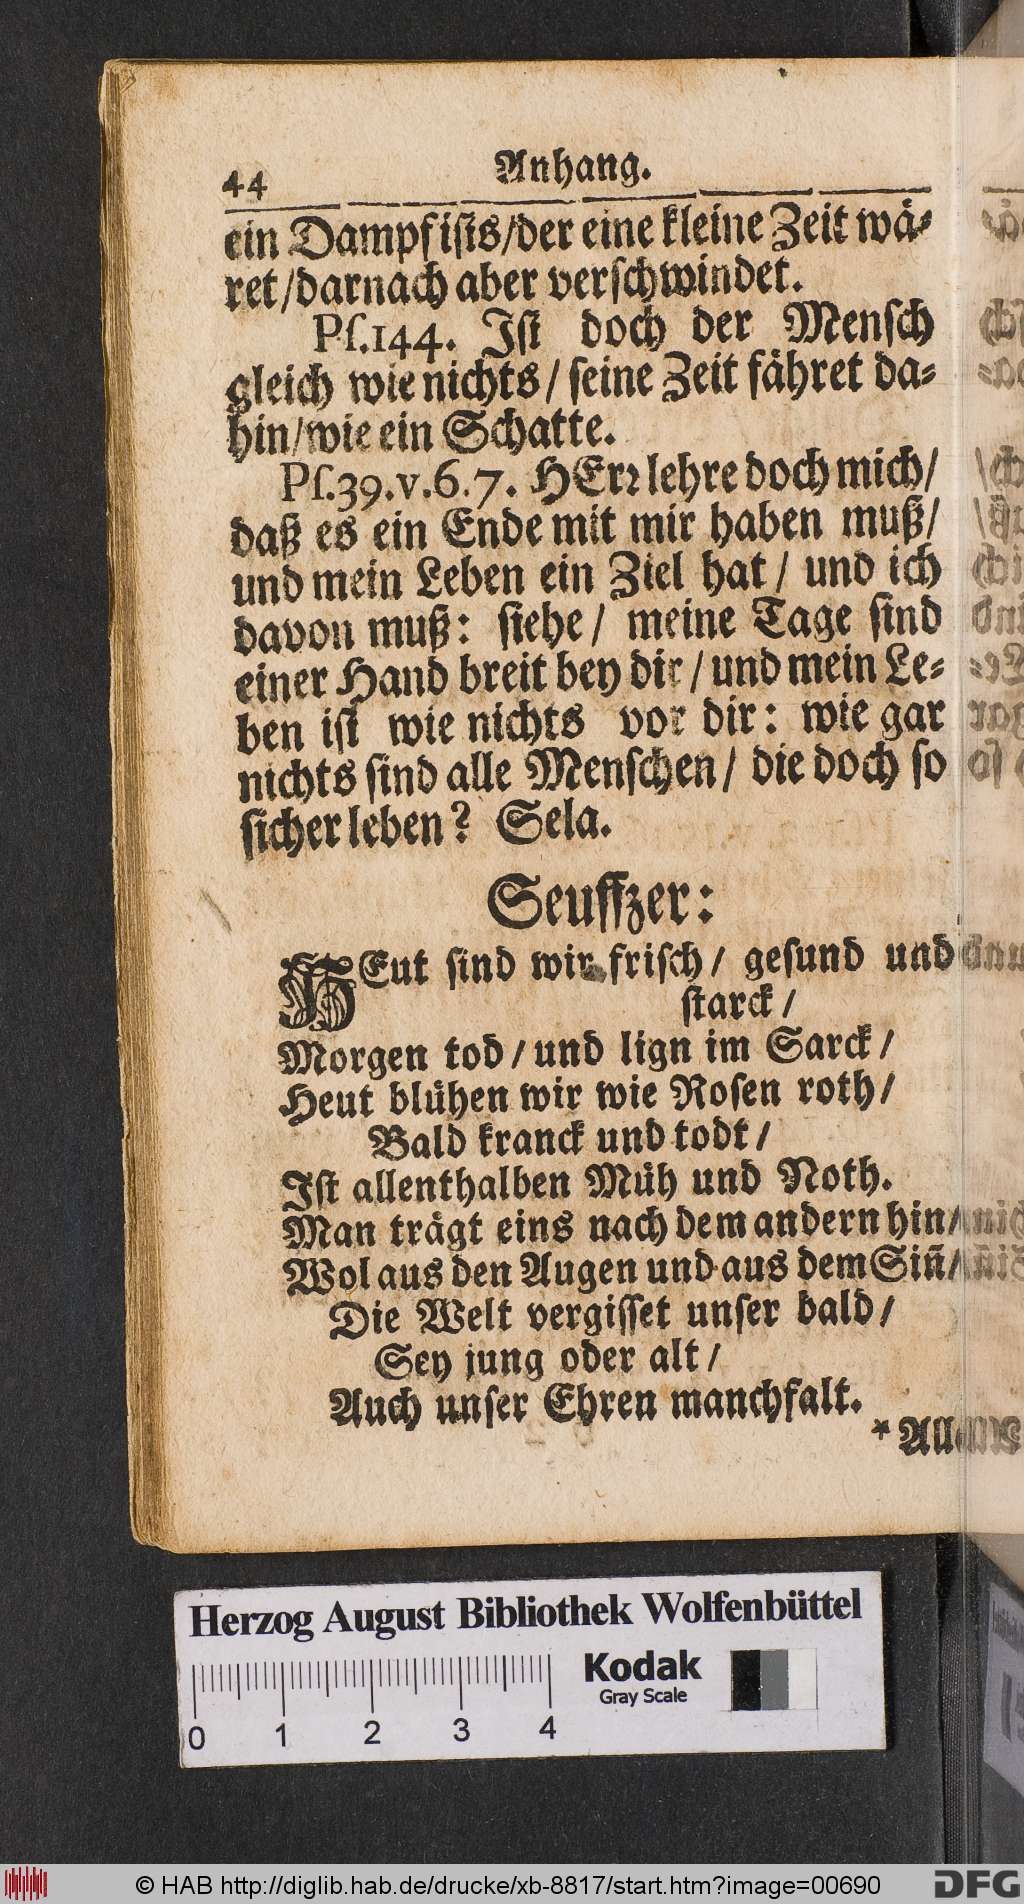 44
Anhang.
ein Dampf iſts/der eine kleine Zeit wä⸗
ret/darnach aber verſchwindet.
Pſ.144. Iſt doch der Menſch
gleich wie nichts/ ſeine Zeit fähret da⸗
hin/wie ein Schatte.
Pſ.39.v.6.7. HErꝛ lehre doch mich/
daß es ein Ende mit mir haben muß/
und mein Leben ein Ziel hat/ und ich
davon muß: ſiehe/ meine Tage ſind
einer Hand breit bey dir/ und mein Le⸗
ben iſt wie nichts vor dir: wie gar
nichts ſind alle Menſchen/ die doch ſo
ſicher leben? Sela.
Seuffzer:
HEut ſind wir friſch/ geſund und
ſtarck/
Morgen tod/ und lign im Sarck/
Heut blühen wir wie Roſen roth/
Bald kranck und todt/
Iſt allenthalben Müh und Noth.
Man trägt eins nach dem andern hin/
Wol aus den Augen und aus dem Siñ/
Die Welt vergiſſet unſer bald/
Sey jung oder alt/
Auch unſer Ehren manchfalt.
* All
Herzog August Bibliothek Wolfenbüttel
Kodak
Gray Scale
0 1 2 3 4
© HAB http://diglib.hab.de/drucke/xb-8817/start.htm?image=00690
DFG